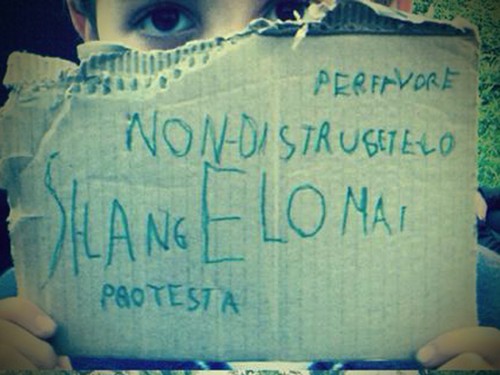 PERFAVORE
NON-DISTRUGETELO
SILANGELO MAI
PROTESTA